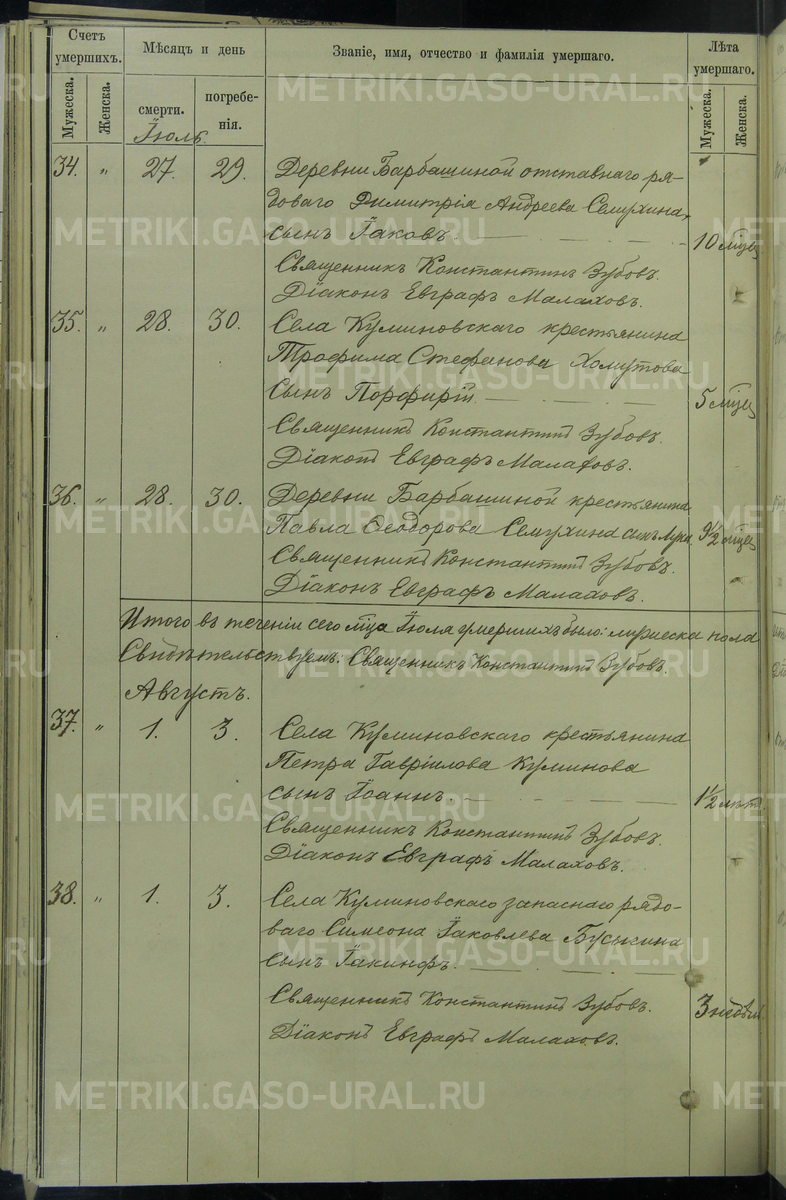 Счетъ умершихъ.
Мѣсяцъ и день
Званіе, имя, отчество и фамилія умершаго.
Лѣта умершаго.
Мужеска.
Женска.
смерти.
погребе-
нія.
Мужеска.
Женска.
Іюль.
34. „ 27. 29. Деревни Барбашиной отставнаго ря-
доваго Димитрія Андреева Семухина,
сынъ Іаковъ. 10 мѣсц
Священникъ Константинъ Зубовъ.
Діаконъ Евграфъ Малаховъ.
35. „ 28. 30. Села Куминовскаго крестьянина
Трофима Стефанова Хомутова
сынъ Порфирій. 5 мѣсц
Священникъ Константинъ Зубовъ.
Діаконъ Евграфъ Малаховъ.
36. „ 28. 30. Деревни Барбашиной крестьянина
Павла Ѳеодорова Семухина сынъ Лука. 9½ мѣсц
Священникъ Константинъ Зубовъ.
Діаконъ Евграфъ Малаховъ.
Итого въ теченіи сего мѣсца Іюля умершихъ было: мужеска пола
Свидѣтельствуемъ: Священникъ Константинъ Зубовъ.
Августъ.
37. „ 1. 3. Села Куминовскаго крестьянина
Петра Гавріилова Куминова
сынъ Іоаннъ. 1½ лѣтъ
Священникъ Константинъ Зубовъ.
Діаконъ Евграфъ Малаховъ.
38. „ 1. 3. Села Куминовскаго запаснаго рядо-
ваго Симеона Іаковлева Бусыгина
сынъ Іакинфъ.
Священникъ Константинъ Зубовъ. 3 недѣли
Діаконъ Евграфъ Малаховъ.
METRIKI.GASO-URAL.RU